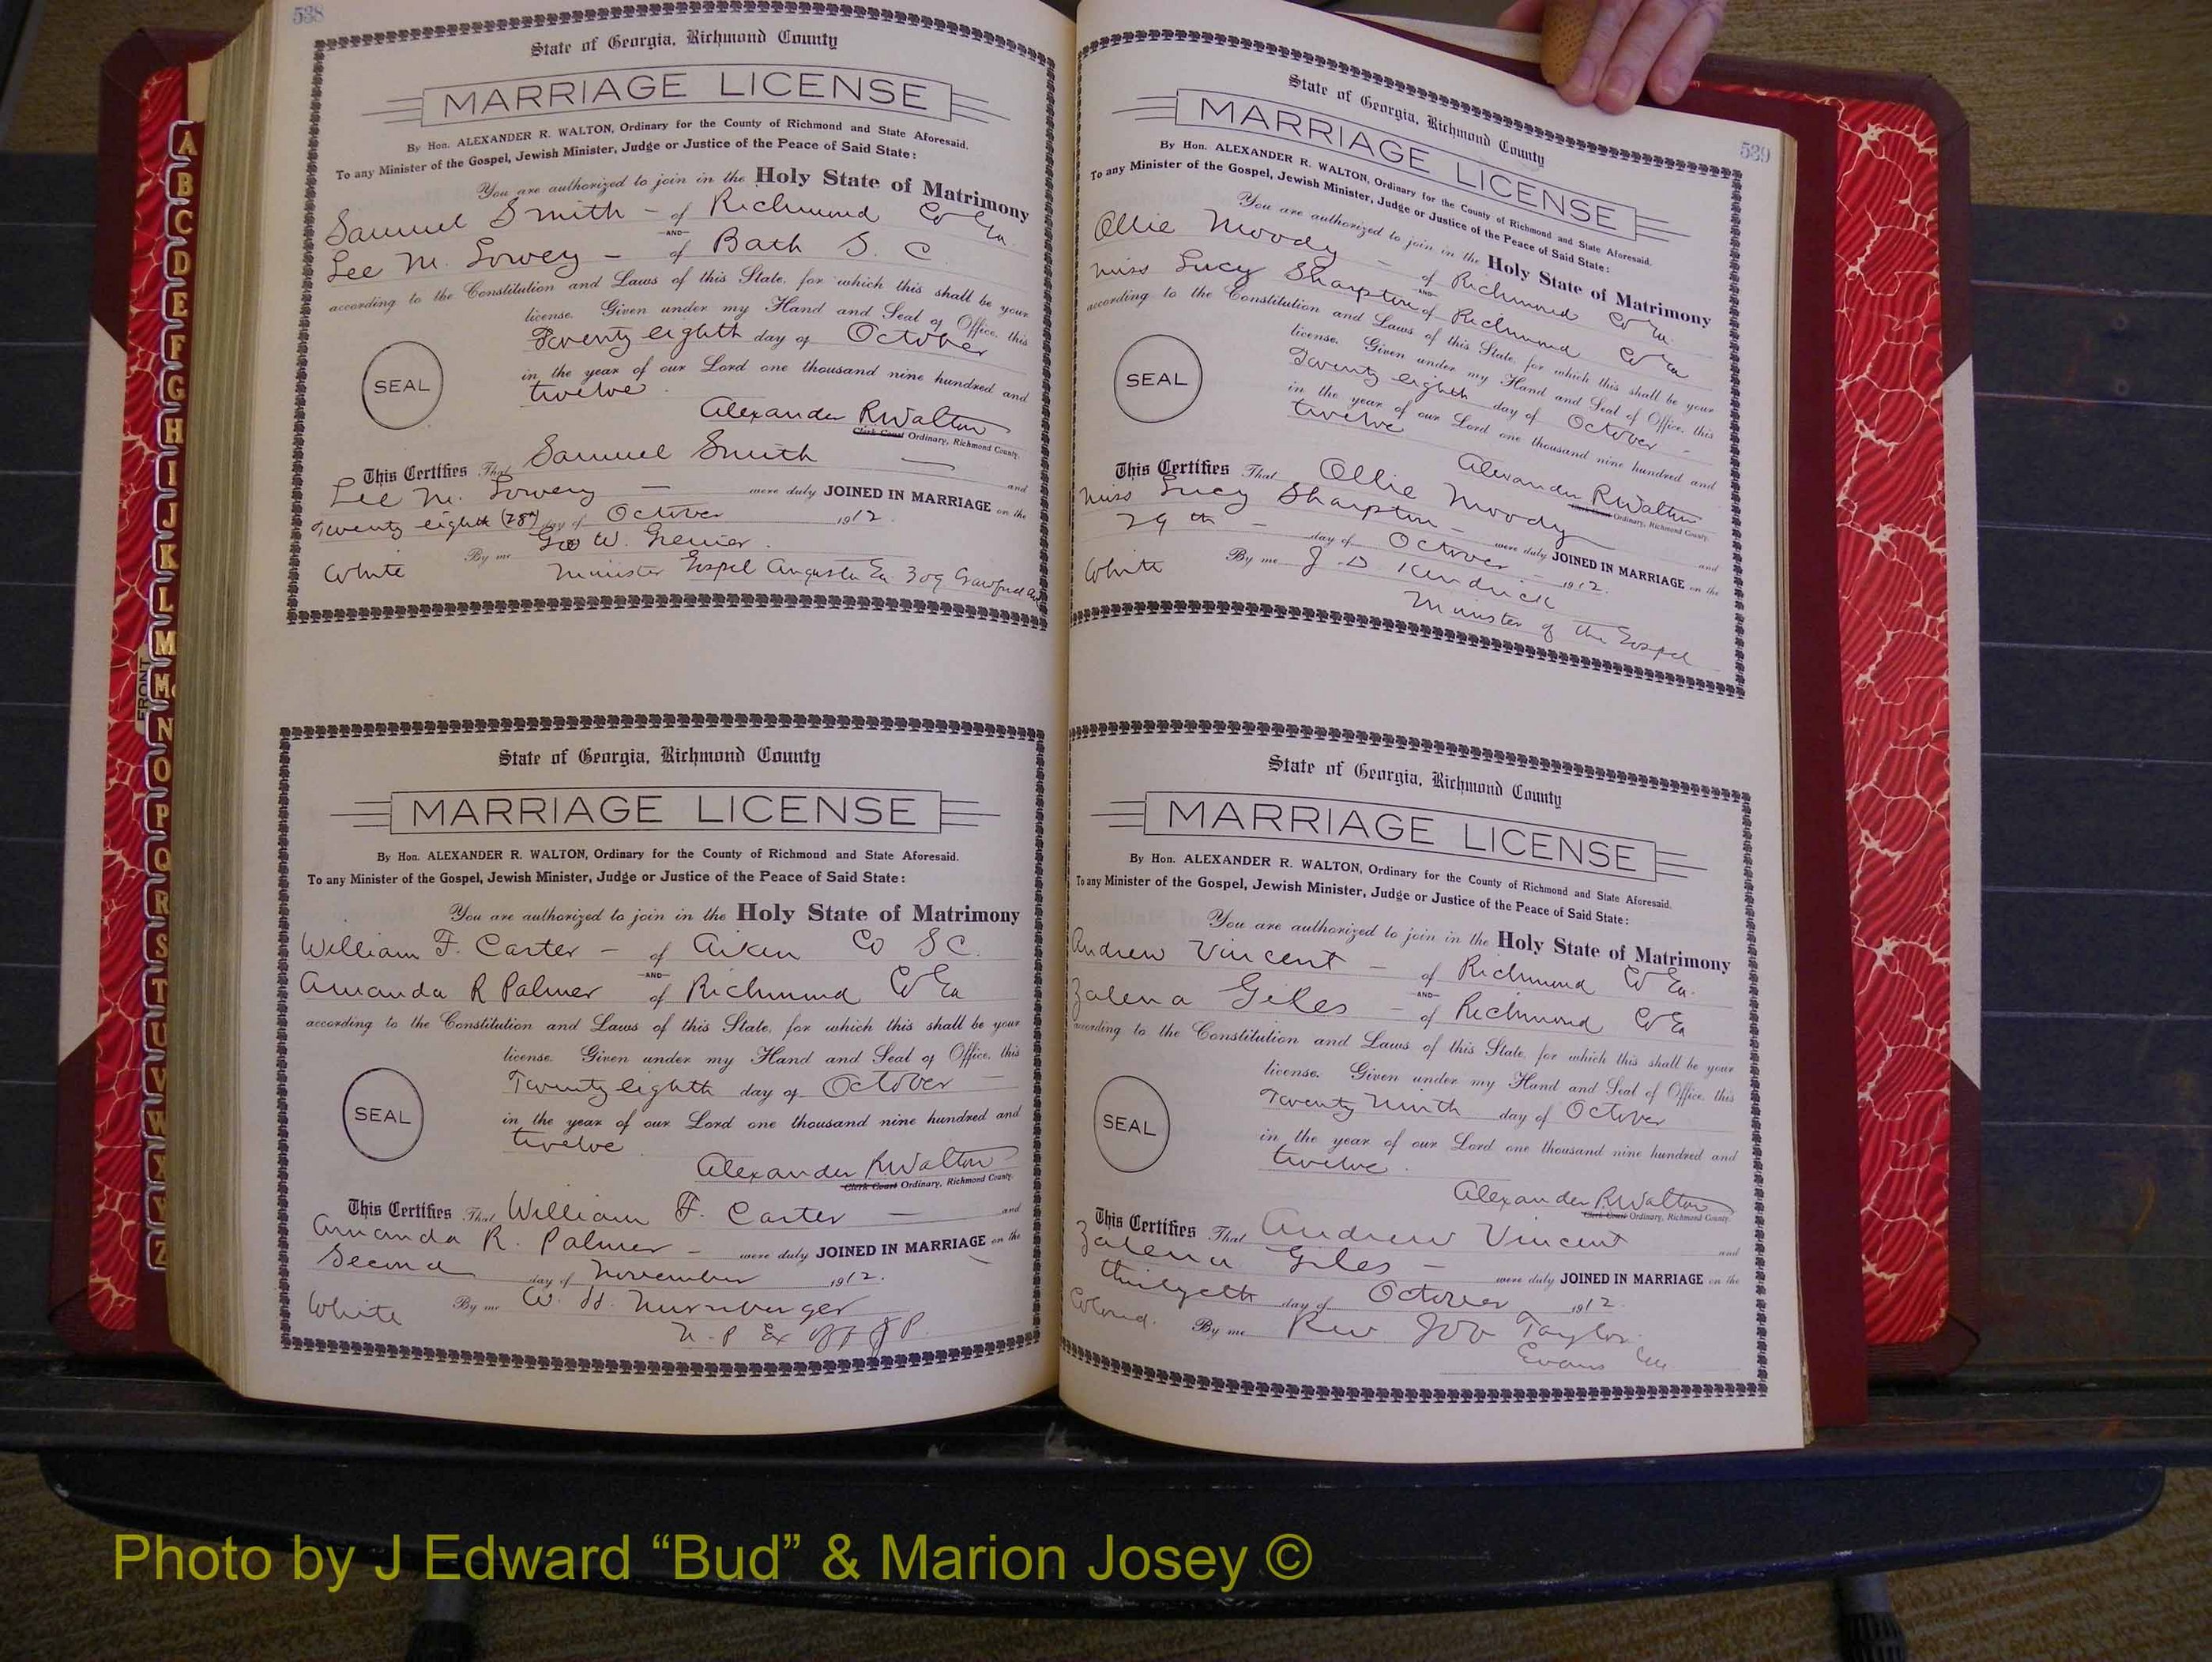 538
State of Georgia, Richmond County
MARRIAGE LICENSE
By Hon. ALEXANDER R. WALTON, Ordinary for the County of Richmond and State Aforesaid.
To any Minister of the Gospel, Jewish Minister, Judge or Justice of the Peace of Said State:
You are authorized to join in the Holy State of Matrimony
Samuel Smith - of Richmond Co Ga
AND
Lee M. Lowery - of Bath S. C
according to the Constitution and Laws of this State, for which this shall be your
license. Given under my Hand and Seal of Office, this
Twenty eighth day of October
in the year of our Lord one thousand nine hundred and
twelve
SEAL
Alexander R Walton
Clerk Court Ordinary, Richmond County.
This Certifies That Samuel Smith and
Lee M. Lowery - were duly JOINED IN MARRIAGE on the
Twenty eighth (28th) day of October 1912.
By me Geo W.
White Minister Gospel Augusta Ga 309 Crawford Av
State of Georgia, Richmond County
MARRIAGE LICENSE
By Hon. ALEXANDER R. WALTON, Ordinary for the County of Richmond and State Aforesaid.
To any Minister of the Gospel, Jewish Minister, Judge or Justice of the Peace of Said State:
You are authorized to join in the Holy State of Matrimony
William F. Carter - of Aiken Co S C.
AND
Amanda R Palmer of Richmond Co Ga
according to the Constitution and Laws of this State, for which this shall be your
license. Given under my Hand and Seal of Office, this
Twenty eighth day of October
in the year of our Lord one thousand nine hundred and
twelve
SEAL
Alexander R Walton
Clerk Court Ordinary, Richmond County.
This Certifies That William F. Carter - and
Amanda R. Palmer - were duly JOINED IN MARRIAGE on the
Second day of November 1912.
White By me W. H. Nurnburger
N. P Ex Off J P.
539
State of Georgia, Richmond County
MARRIAGE LICENSE
By Hon. ALEXANDER R. WALTON, Ordinary for the County of Richmond and State Aforesaid.
To any Minister of the Gospel, Jewish Minister, Judge or Justice of the Peace of Said State:
You are authorized to join in the Holy State of Matrimony
Ollie Moody - of Richmond Co Ga.
AND
Miss Lucy Sharpton of Richmond Co Ga
according to the Constitution and Laws of this State, for which this shall be your
license. Given under my Hand and Seal of Office, this
Twenty eighth day of October -
in the year of our Lord one thousand nine hundred and
twelve
SEAL
Alexander R Walton
Clerk Court Ordinary, Richmond County.
This Certifies That Ollie Moody and
Miss Lucy Sharpton - were duly JOINED IN MARRIAGE on the
29th - day of October - 1912.
White By me J. D Kendrick
Minister of the Gospel
State of Georgia, Richmond County
MARRIAGE LICENSE
By Hon. ALEXANDER R. WALTON, Ordinary for the County of Richmond and State Aforesaid.
To any Minister of the Gospel, Jewish Minister, Judge or Justice of the Peace of Said State:
You are authorized to join in the Holy State of Matrimony
Andrew Vincent - of Richmond Co Ga.
AND
Zalena Giles - of Richmond Co Ga
according to the Constitution and Laws of this State, for which this shall be your
license. Given under my Hand and Seal of Office, this
Twenty Ninth day of October
in the year of our Lord one thousand nine hundred and
twelve.
SEAL
Alexander R Walton
Clerk Court Ordinary, Richmond County.
This Certifies That Andrew Vincent and
Zalena Giles - were duly JOINED IN MARRIAGE on the
thirtyeth day of October 1912.
Colored. By me Rev Job Taylor.
Evans Ga.
FRONT
A
B
C
D
E
F
G
H
I
J
K
L
M
Mc
N
O
P
Q
R
S
T
U
V
W
X
Y
Z
Photo by J Edward “Bud” & Marion Josey ©